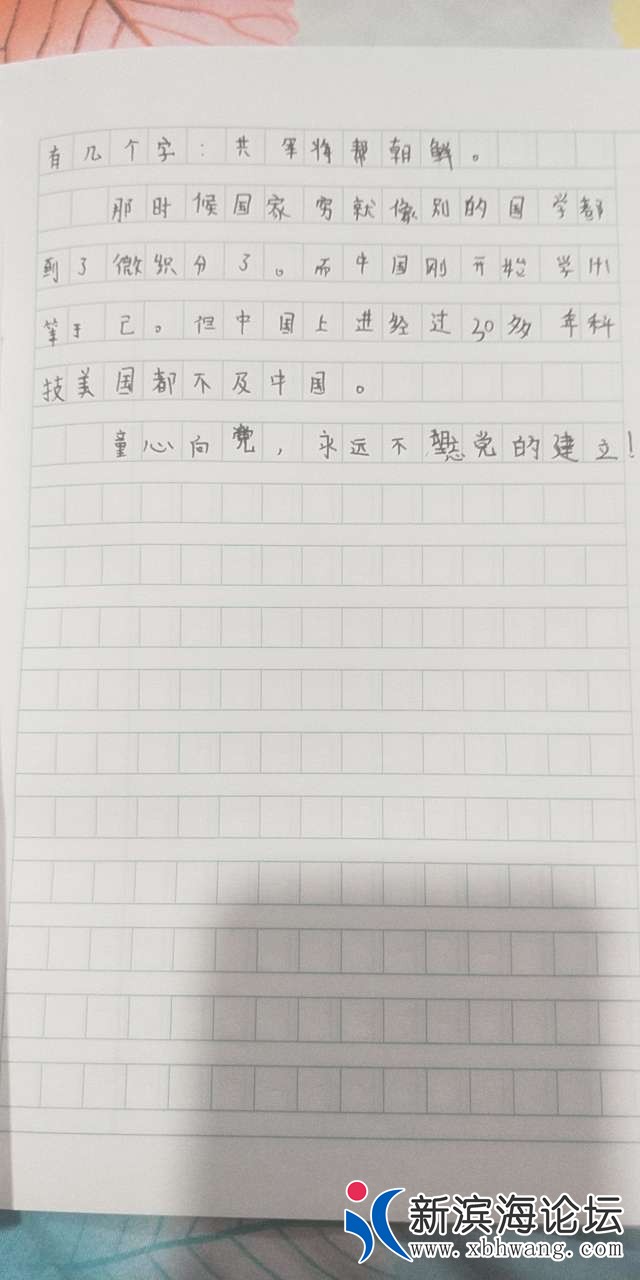 有几个字：共军将帮朝鲜。
那时候国家穷就像别的国学都
到了微积分了。而中国刚开始学1+1
等于己。但中国上进经过30多年科
技美国都不及中国。
童心向党，永远不忘党的建立！
新滨海论坛
www.xbhwang.com